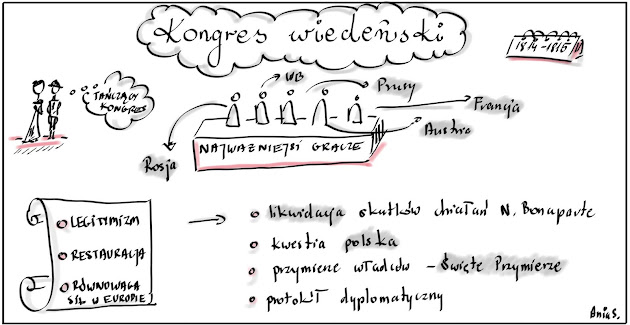 Kongres wiedeński
1814-1815
TAŃCZĄCY
KONGRES
WB
Prusy
Francja
Austria
Rosja
NAJWAŻNIEJSI GRACZE
LEGITYMIZM
RESTAURACJA
RÓWNOWAGA
SIŁ W EUROPIE
likwidacja skutków działań N. Bonaparte
kwestia polska
przymierze władców - Święte Przymierze
protokół dyplomatyczny
Ania S.